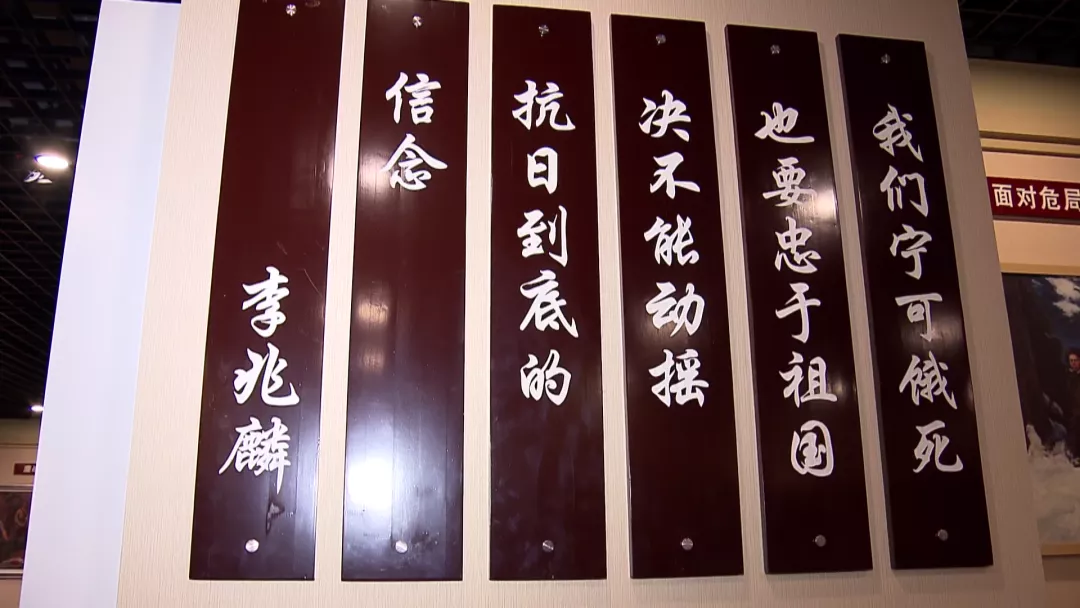 我们宁可饿死
也要忠于祖国
决不能动摇
抗日到底的
信念
李兆麟
面对危局